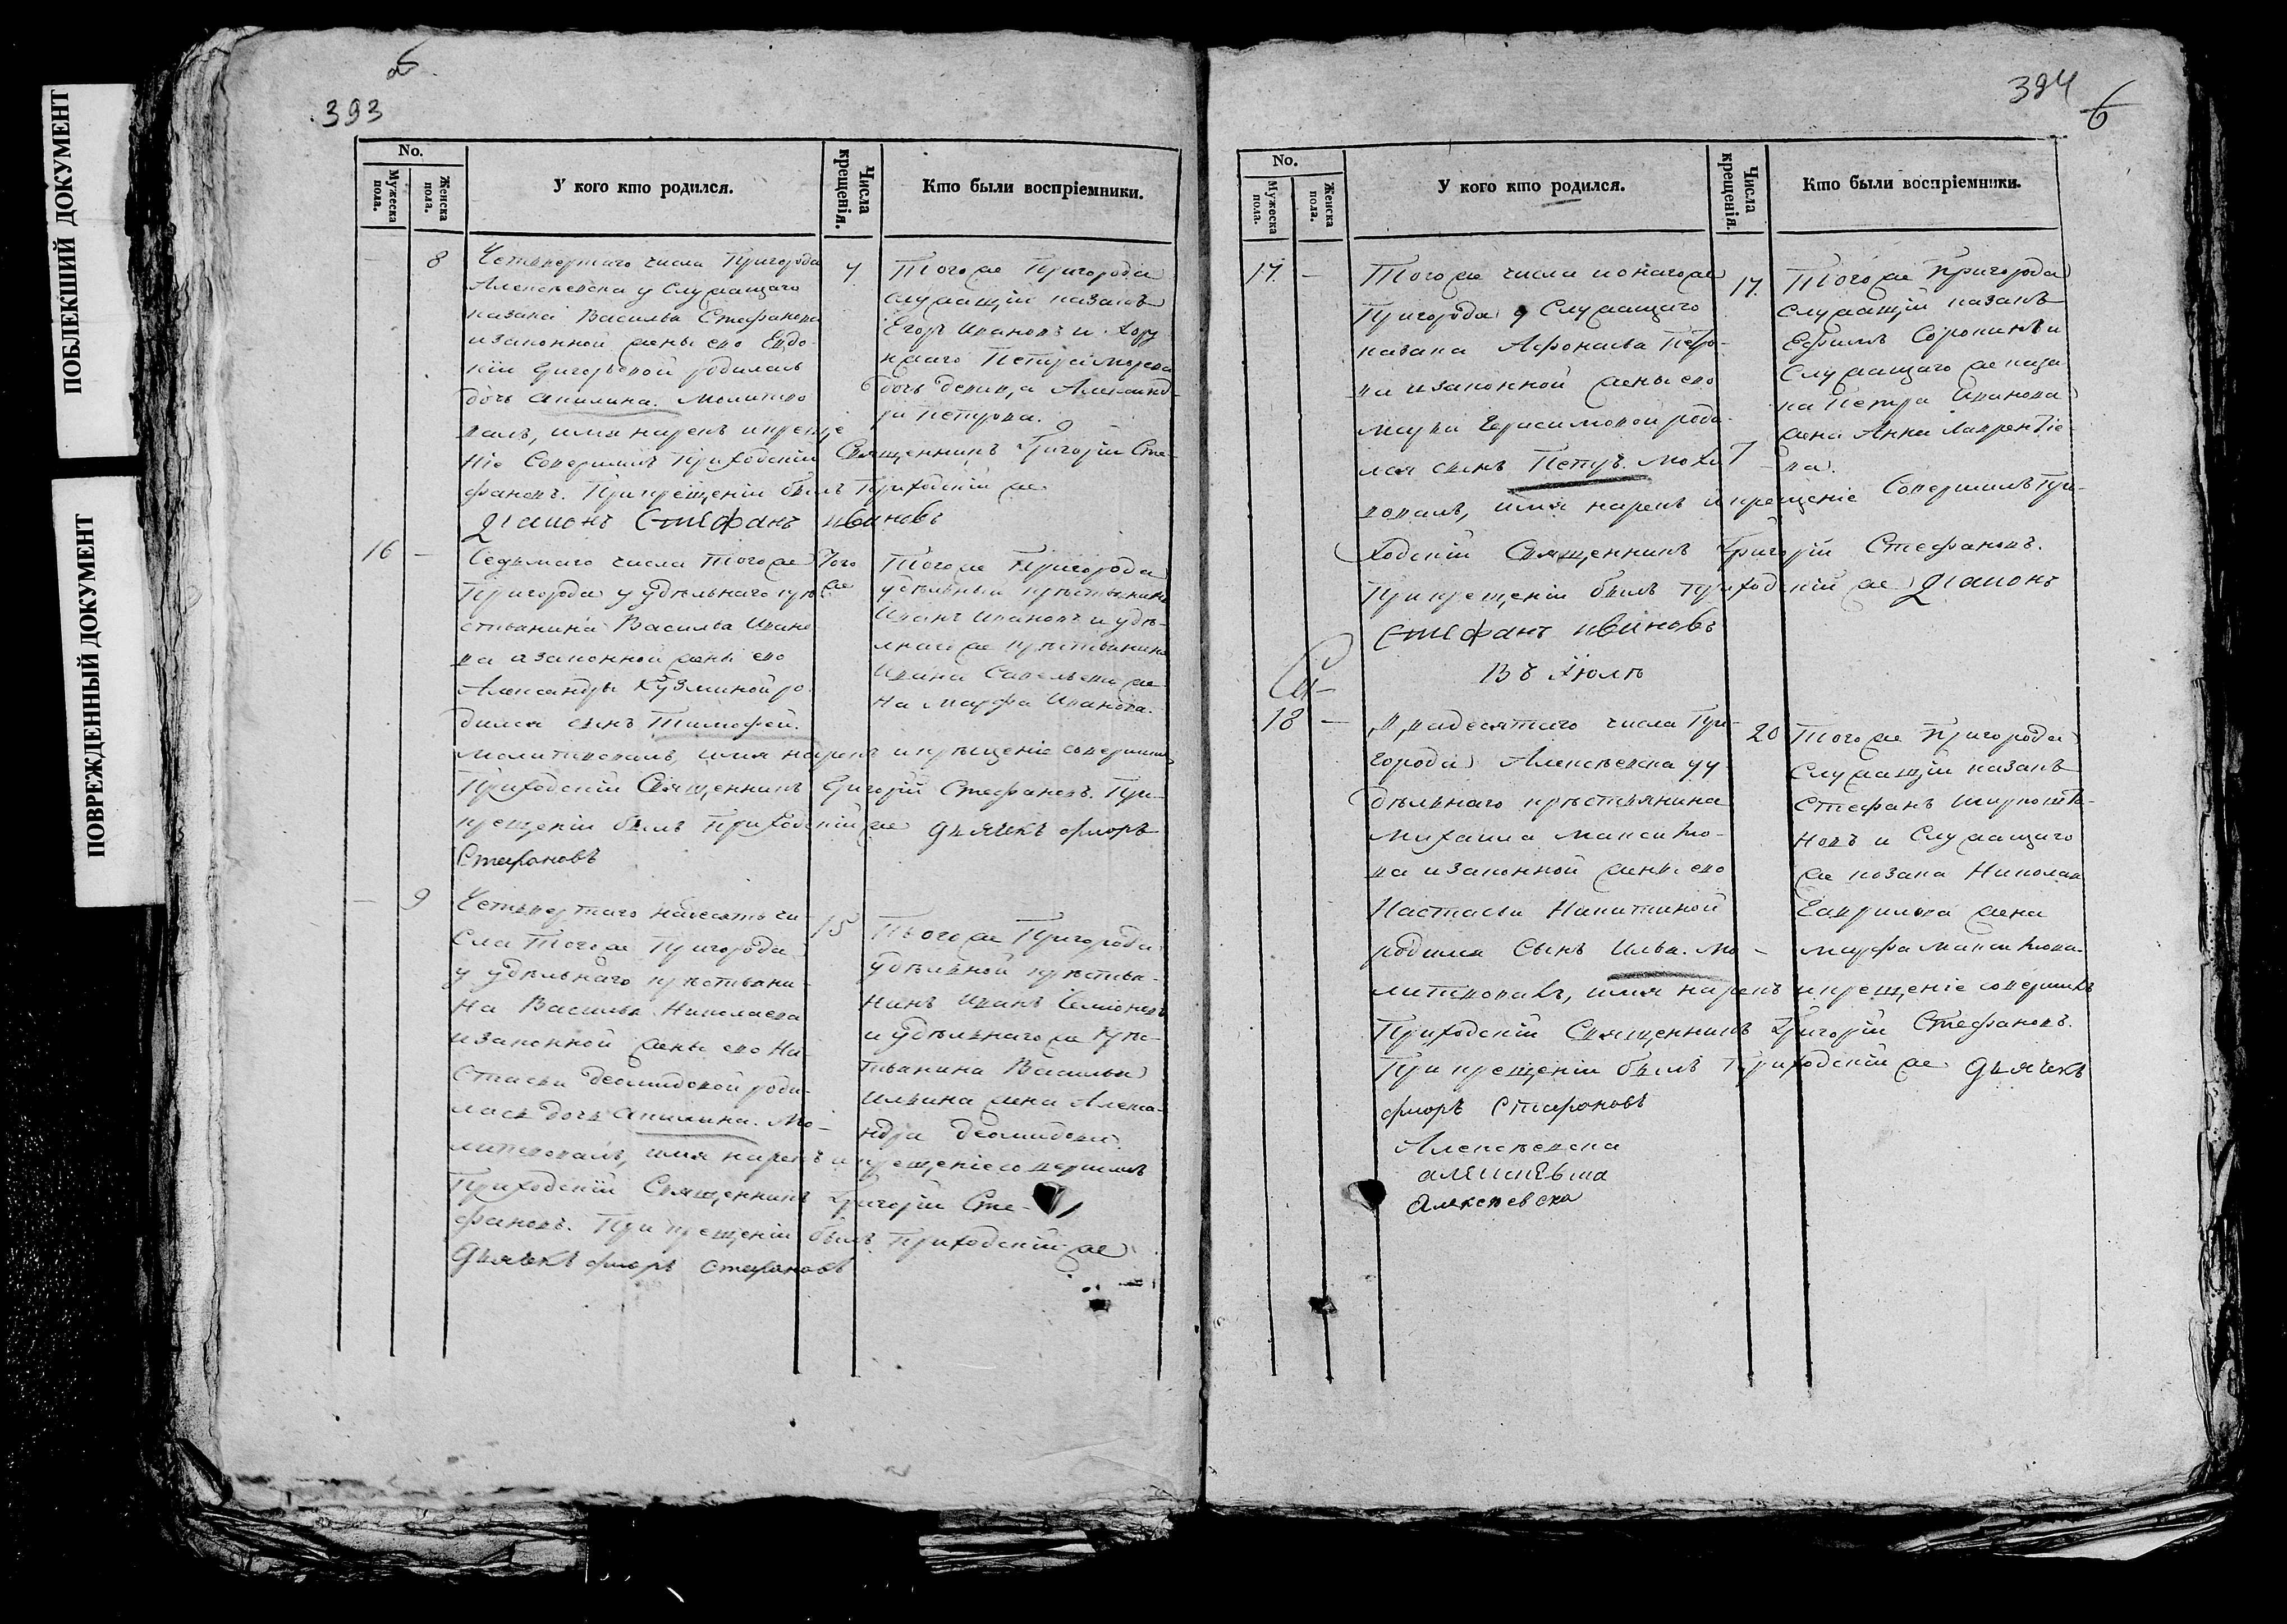 ПОБЛЕКШИЙ ДОКУМЕНТ
ПОВРЕЖДЕННЫЙ ДОКУМЕНТ
393
No.
Мужеска пола.
Женска пола.
У кого кто родился.
Числа крещенія.
Кто были воспріемники.
8
Четвертаго числа Пригорода
Алексѣевска у Служащаго
казака Василья Стефанова
и законной жены его Евдо-
кіи Григорьевой родилась
дочь Акилина. Молитво
валъ, имя нарекъ и креще
ніе Совершилъ Приходскій Священникъ Григорій Сте-
фановъ. При крещеніи былъ Приходскій же
Діаконъ Стефанъ Ивановъ
Того же Пригорода
служащій казакъ
Егоръ Ивановъ и Хору
нжаго Петра
дочь девица Александ-
ра Петрова.
16 —
Седьмаго числа того же
Пригорода у удѣльнаго кре
стьянина Василья Ивано
ва и законной жены его
Александры Кузминой ро
дился сынъ Тимофей.
молитвовалъ, имя нарекъ и крещеніе совершилъ
Приходскій Священникъ Григорій Стефановъ. При
крещеніи былъ Приходскій же дьячекъ Флоръ
Стефановъ
Того
же
Того же Пригорода
удѣльный крестьянинъ
Иванъ Ивановъ и удѣ-
льнаго же крестьянина
Ивана Савельева же-
на Марфа Иванова.
— 9
Четвертаго надесять чи-
сла того же Пригорода
у удѣльнаго крестьяни-
на Василья Николаева
и законной жены его На-
стасьи Деомидовой роди-
лась дочь Акилина. Мо-
литвовалъ, имя нарекъ и крещеніе совершилъ
Приходскій Священникъ Григорій Сте-
фановъ. При крещеніи былъ Приходскій же
Дьячекъ Флоръ Стефановъ
15
Того же Пригорода
удѣльной крестья-
нинъ Иванъ Семіоновъ
и удѣльнаго же кре-
стьянина Василья
Ильина жена Алекса-
ндра Деомидова.
394
6
No.
Мужеска пола.
Женска пола.
У кого кто родился.
Числа крещенія.
Кто были воспріемники.
17. —
Того же числа и онаго же
Пригорода у Служащаго
казака Афонасья Петро-
ва и законной жены его
Герасимовой роди-
лся сынъ Петръ. Молит-
вовалъ, имя нарекъ и крещеніе Совершилъ При-
ходскій Священникъ Григорій Стефановъ.
При крещеніи былъ Приходскій же Діаконъ
Стефанъ Ивановъ
17.
Того же Пригорода
служащій казакъ
Ефимъ Сорокинъ и
Служащаго же каза
ка Петра Иванова
жена Анна Лаврентіе-
ва.
Въ Іюлѣ
18 —
Двадесятаго числа При-
города Алексѣевска у у
дѣльнаго крестьянина
Михаила Максимо-
ва и законной жены его
Настасьи Никитиной
родился Сынъ Илья. Мо-
литвовалъ, имя нарекъ и крещеніе совершилъ
Приходскій Священникъ Григорій Стефановъ.
При крещеніи былъ Приходскій же дьячекъ
Флоръ Стефановъ
20
Того же Пригорода
Служащій казакъ
Стефанъ
новъ и Служащаго
же козака Николая
Гаврилова жена
Марфа Максимова.
Алексѣевска
Алексѣевска